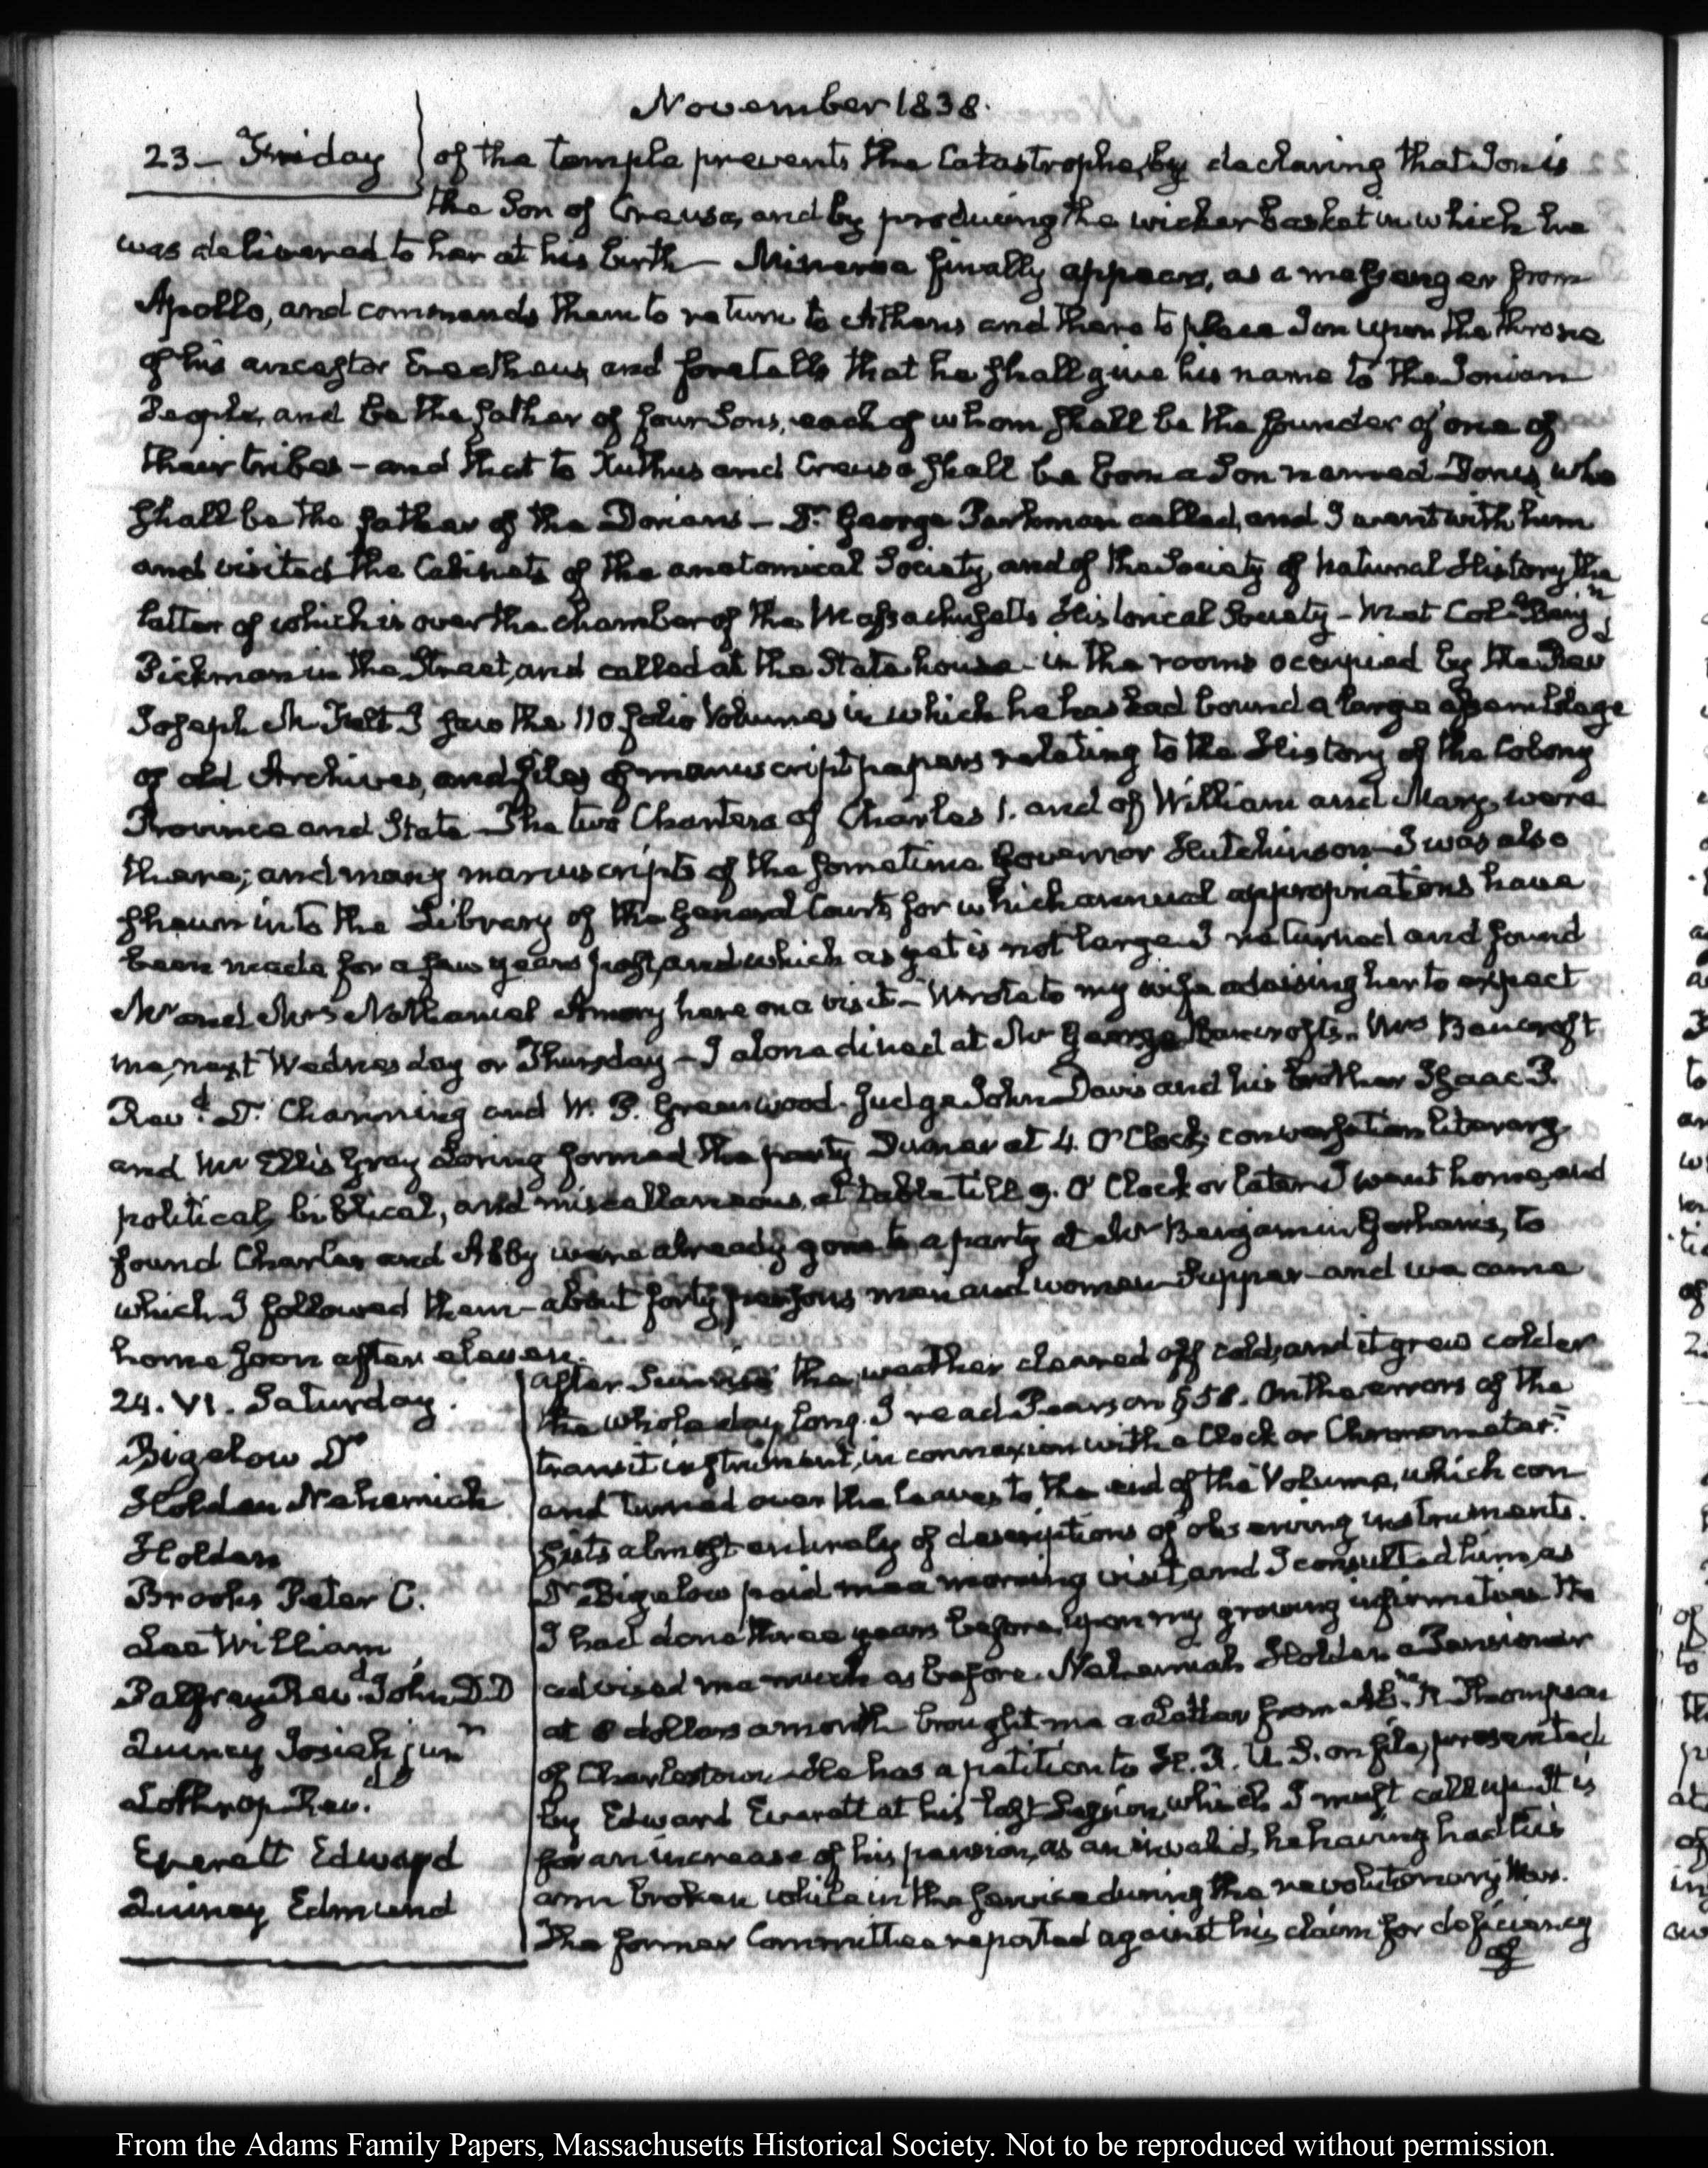 November 1838.
23 – Friday
of the temple prevents the Catastrophe, by declaring that Ion is
the Son of Creusa, and by producing the wicker basket in which he
was delivered to her at his birth – Minerva finally appears, as a messenger from
Apollo, and commands them to return to Athens and there to place Ion upon the throne
of his ancestor Erectheus, and foretells that he shall give his name to the Ionian
People, and be the father of four Sons, each of whom shall be the founder of one of
their tribes – and that to Xuthus and Creusa shall be born a Son named Dorus, who
shall be the father of the Dorians – Dr. George Parkman called, and I went with him
and visited the Cabinets of the anatomical Society, and of the Society of Natural History, the
latter of which is over the chamber of the Massachusetts Historical Society – Met Coll. Benjn.
Pickman in the Street, and called at the State house – in the rooms occupied by the Revd
Joseph M. Felt I saw the 110 folio Volumes in which he has had bound a large assemblage
of old Archives, and files of manuscript papers relating to the History of the Colony
Province and State – The two Charters of Charles 1. and of William and Mary, were
there; and many manuscripts of the sometime Governor Hutchinson – I was also
shewn into the Library of the General Court, for which annual appropriations have
been made for a few years past, and which as yet is not large. I returned and found
Mr and Mrs Nathaniel Amory here on a visit – Wrote to my wife advising her to expect
me, next Wednesday or Thursday – I alone dined at Mr George Bancroft's. Mrs Bancroft
Revd. Dr. Channing and W. P. Greenwood. Judge John Davis and his brother Isaac P.
and Mr Ellis Gray Loring formed the party Dinner at 4. O'Clock; conversation literary
political, biblical, and miscellaneous, at table till 9. O'Clock or later I went home, and
found Charles and Abby were already gone to a party at Mr Benjamin Gorham's, to
which I followed them – about forty persons men and women – Supper – and we came
home soon after eleven.
24. VI. Saturday.
Bigelow Dr
Holden Nehemiah
Holden
Brooks Peter C.
Lee William
Palfrey Revd. John DD
Quincy Josiah junr
Lothrop Revd.
Everett Edward
Quincy Edmund
after Sunrise the weather cleared off cold, and it grew colder
the whole day long. I read Pearson § 58. On the errors of the
transit instrument, in connexion with a Clock or Chronometer –
and turned over the leaves to the end of the Volume, which con
sists almost entirely of descriptions of observing instruments.
Dr Bigelow paid me a morning visit, and I consulted him as
I had done three years before, upon my growing infirmities. He
advised me much as before. Nehemiah Holden a Pensioner
at 8 dollars a month brought me a Letter from Abm. R. Thompson
of Charlestown – He has a petition to H. R. U. S. on file, presented
by Edward Everett at his last Session, which I must call up. It is
for an increase of his pension, as an invalid, he having had his
arm broken while in the service during the revolutionary War.
The former Committee reported against his claim for deficiency
of
From the Adams Family Papers, Massachusetts Historical Society. Not to be reproduced without permission.